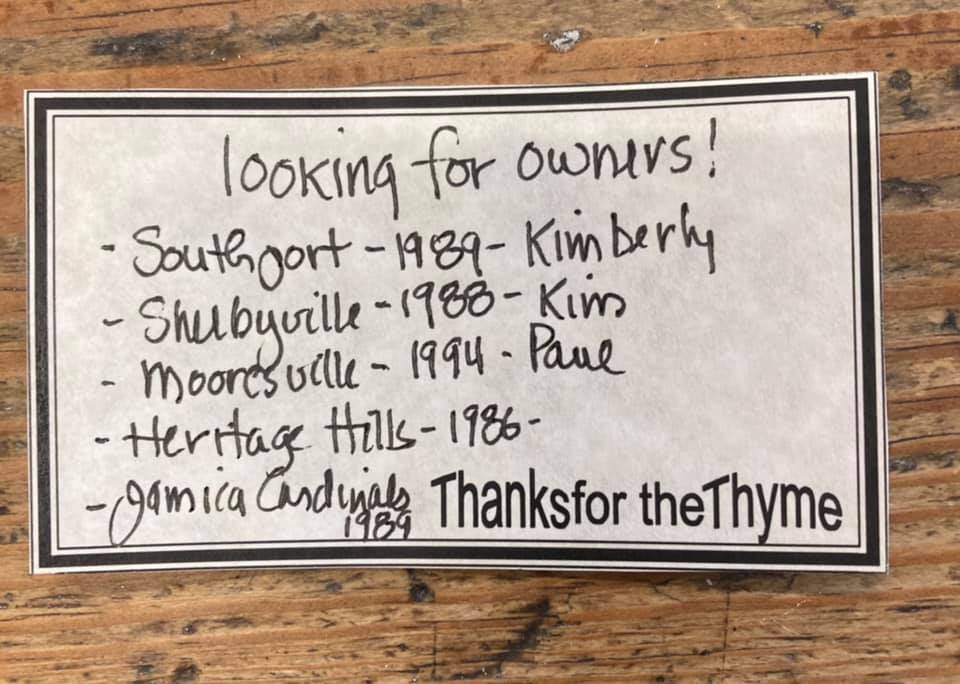 looking for owners!
- Southport - 1989 - Kimberly
- Shelbyville - 1988 - Kim
- Mooresville - 1994 - Paul
- Heritage Hills - 1986 -
- Jamica Cardinals
1989
Thanksfor theThyme